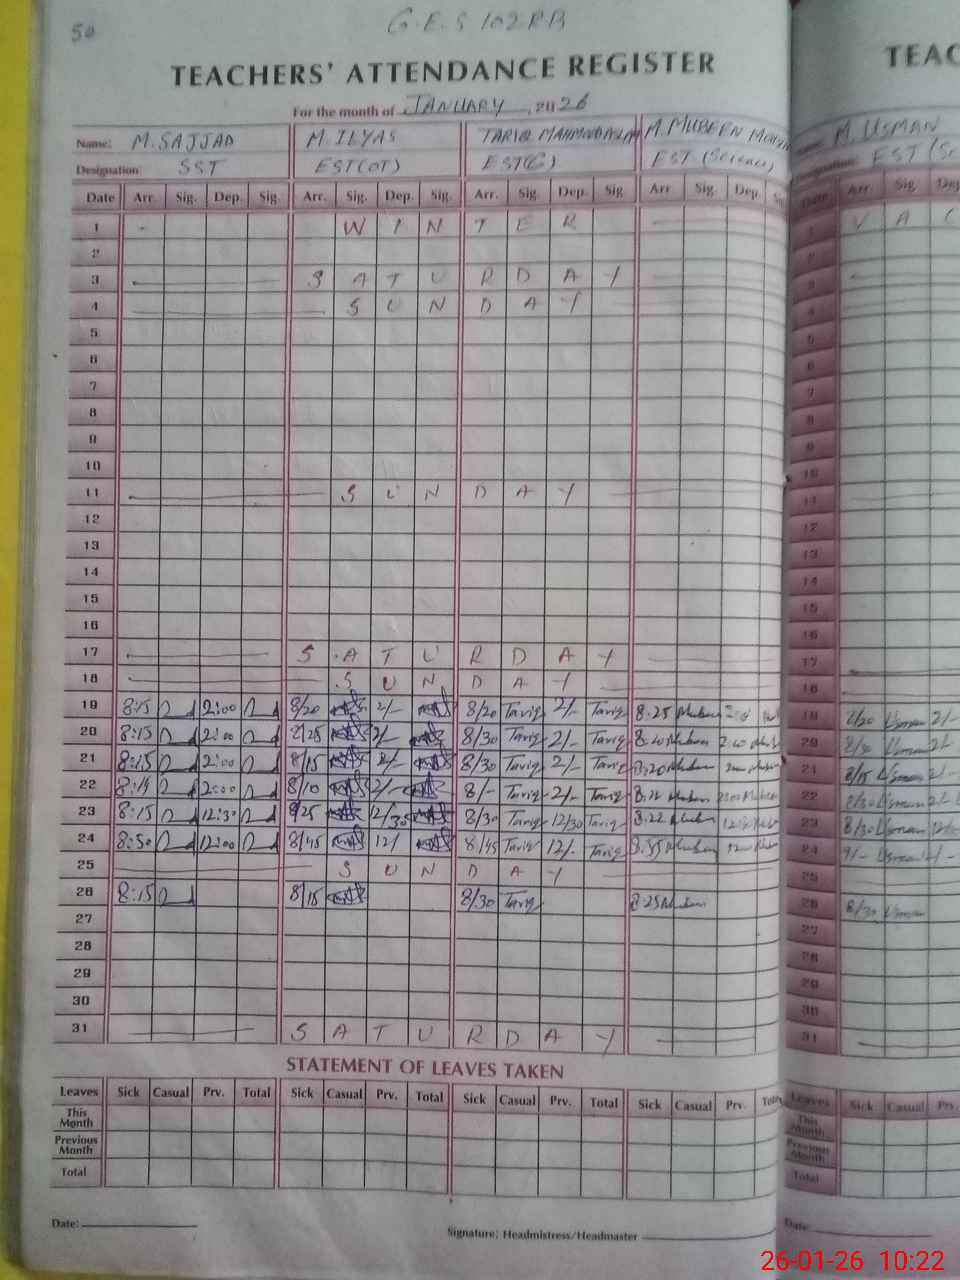 50
G.E.S 102 RB
TEACHERS' ATTENDANCE REGISTER
TEAC
For the month of JANUARY, 2026
Name: M. SAJJAD M. ILYAS TARIQ MAHMOOD M. MUBEEN M. USMAN
Designation: SST EST(OT) EST(G) EST (Science) EST (Sc
Date Arr. Sig. Dep. Sig. Arr. Sig. Dep. Sig. Arr. Sig. Dep. Sig. Arr Sig. Dep. Si Arr. Sig. Dep
1 W I N T E R V A C
2
3 S A T U R D A Y
4 S U N D A Y
5
6
7
8
9
10
11 S U N D A Y
12
13
14
15
16
17 S A T U R D A Y
18 S U N D A Y
19 8:15 2:00 8/20 2/- 8/20 Tariq 2/- Tariq 8.25 Mubeen 8/20 Usman 2/-
20 8:15 2:00 8/25 2/- 8/30 Tariq 2/- Tariq 8.20 Mubeen 2:00 8/30 Usman 2/-
21 8:15 2:00 8/15 2/- 8/30 Tariq 2/- Tariq 8.20 Mubeen 8/15 Usman
22 8:15 2:00 8/10 2/- 8/- Tariq 2/- Tariq 8.22 Mubeen 8/30 Usman
23 8:15 12:30 8/25 12/30 8/30 Tariq 12/30 Tariq 8.22 Mubeen 8/30 Usman
24 8:50 12:00 8/45 12/ 8/45 Tariq 12/- Tariq 8.55 Mubeen 9/- Usman
25 S U N D A Y
26 8:15 8/15 8/30 Tariq 8.25 Mubeen 8/30 Usman
27
28
29
30
31 S A T U R D A Y
STATEMENT OF LEAVES TAKEN
Leaves Sick Casual Prv. Total Sick Casual Prv. Total Sick Casual Prv. Total Sick Casual Prv. Total Leaves Sick Casual Prv.
This Month This Month
Previous Month Previous Month
Total Total
Date: Signature: Headmistress/Headmaster Date:
26-01-26 10:22